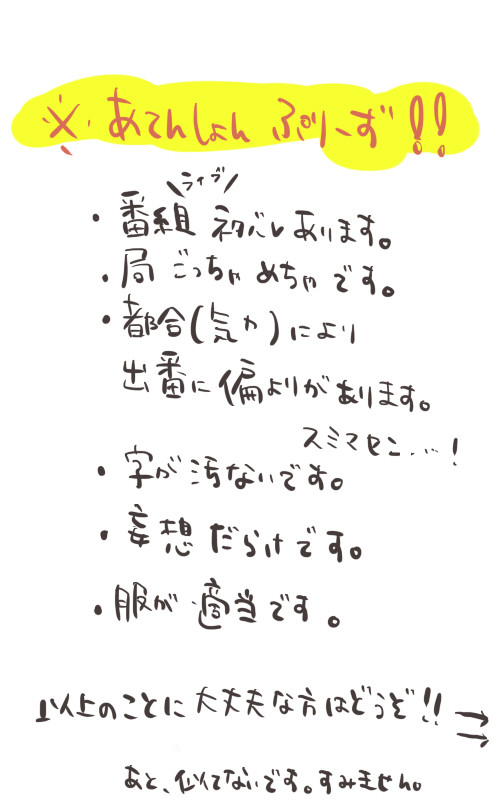 ※ あてんしょん ぷりーず!!
\ライブ/
・番組 ネタバレあります。
・局 ごっちゃめちゃです。
・都合(気力)により
出番に偏よりがあります。
スミマセン…!
・字が汚ないです。
・妄想だらけです。
・服が適当です。
以上のことに大丈夫な方はどうぞ!! →→
あと、似てないです。すみません。